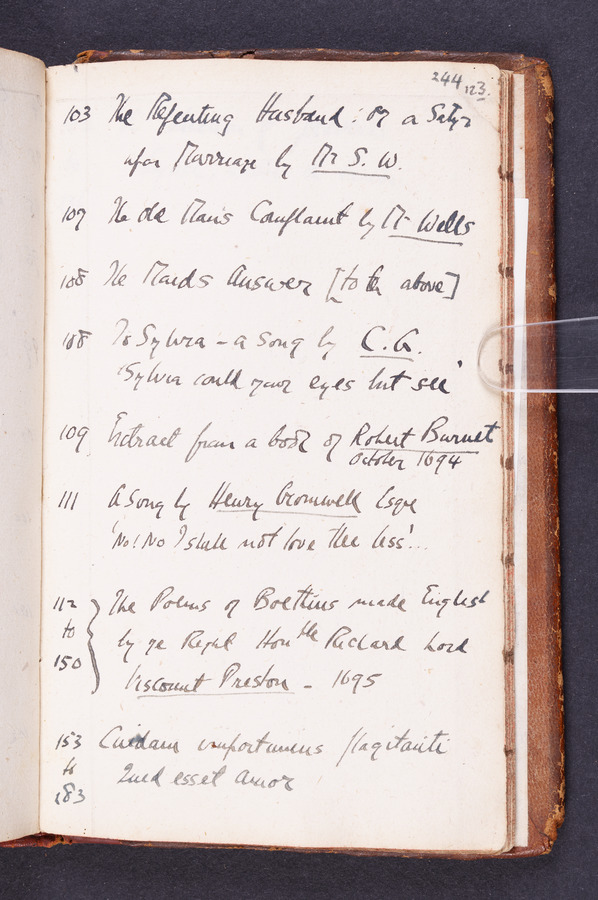 244
123.
103 The Repenting Husband : or a Satyr
upon Marriage by Mr S. W.
107 The old Man's Complaint by Mr Wells
108 The Maids Answer [to the above]
108 To Sylvia - a song by C. G.
'Sylvia could your eyes but see'
109 Extract from a book of Robert Burnet
October 1694
111 A Song by Henry Cromwell Esqre
'No! No I shall not love thee less'...
112 The Poems of Boethius made English
to by ye Right Honble Richard Lord
150 Viscount Preston - 1695
153 Cuidam importunius flagitanti
to Quid esset Amor
183